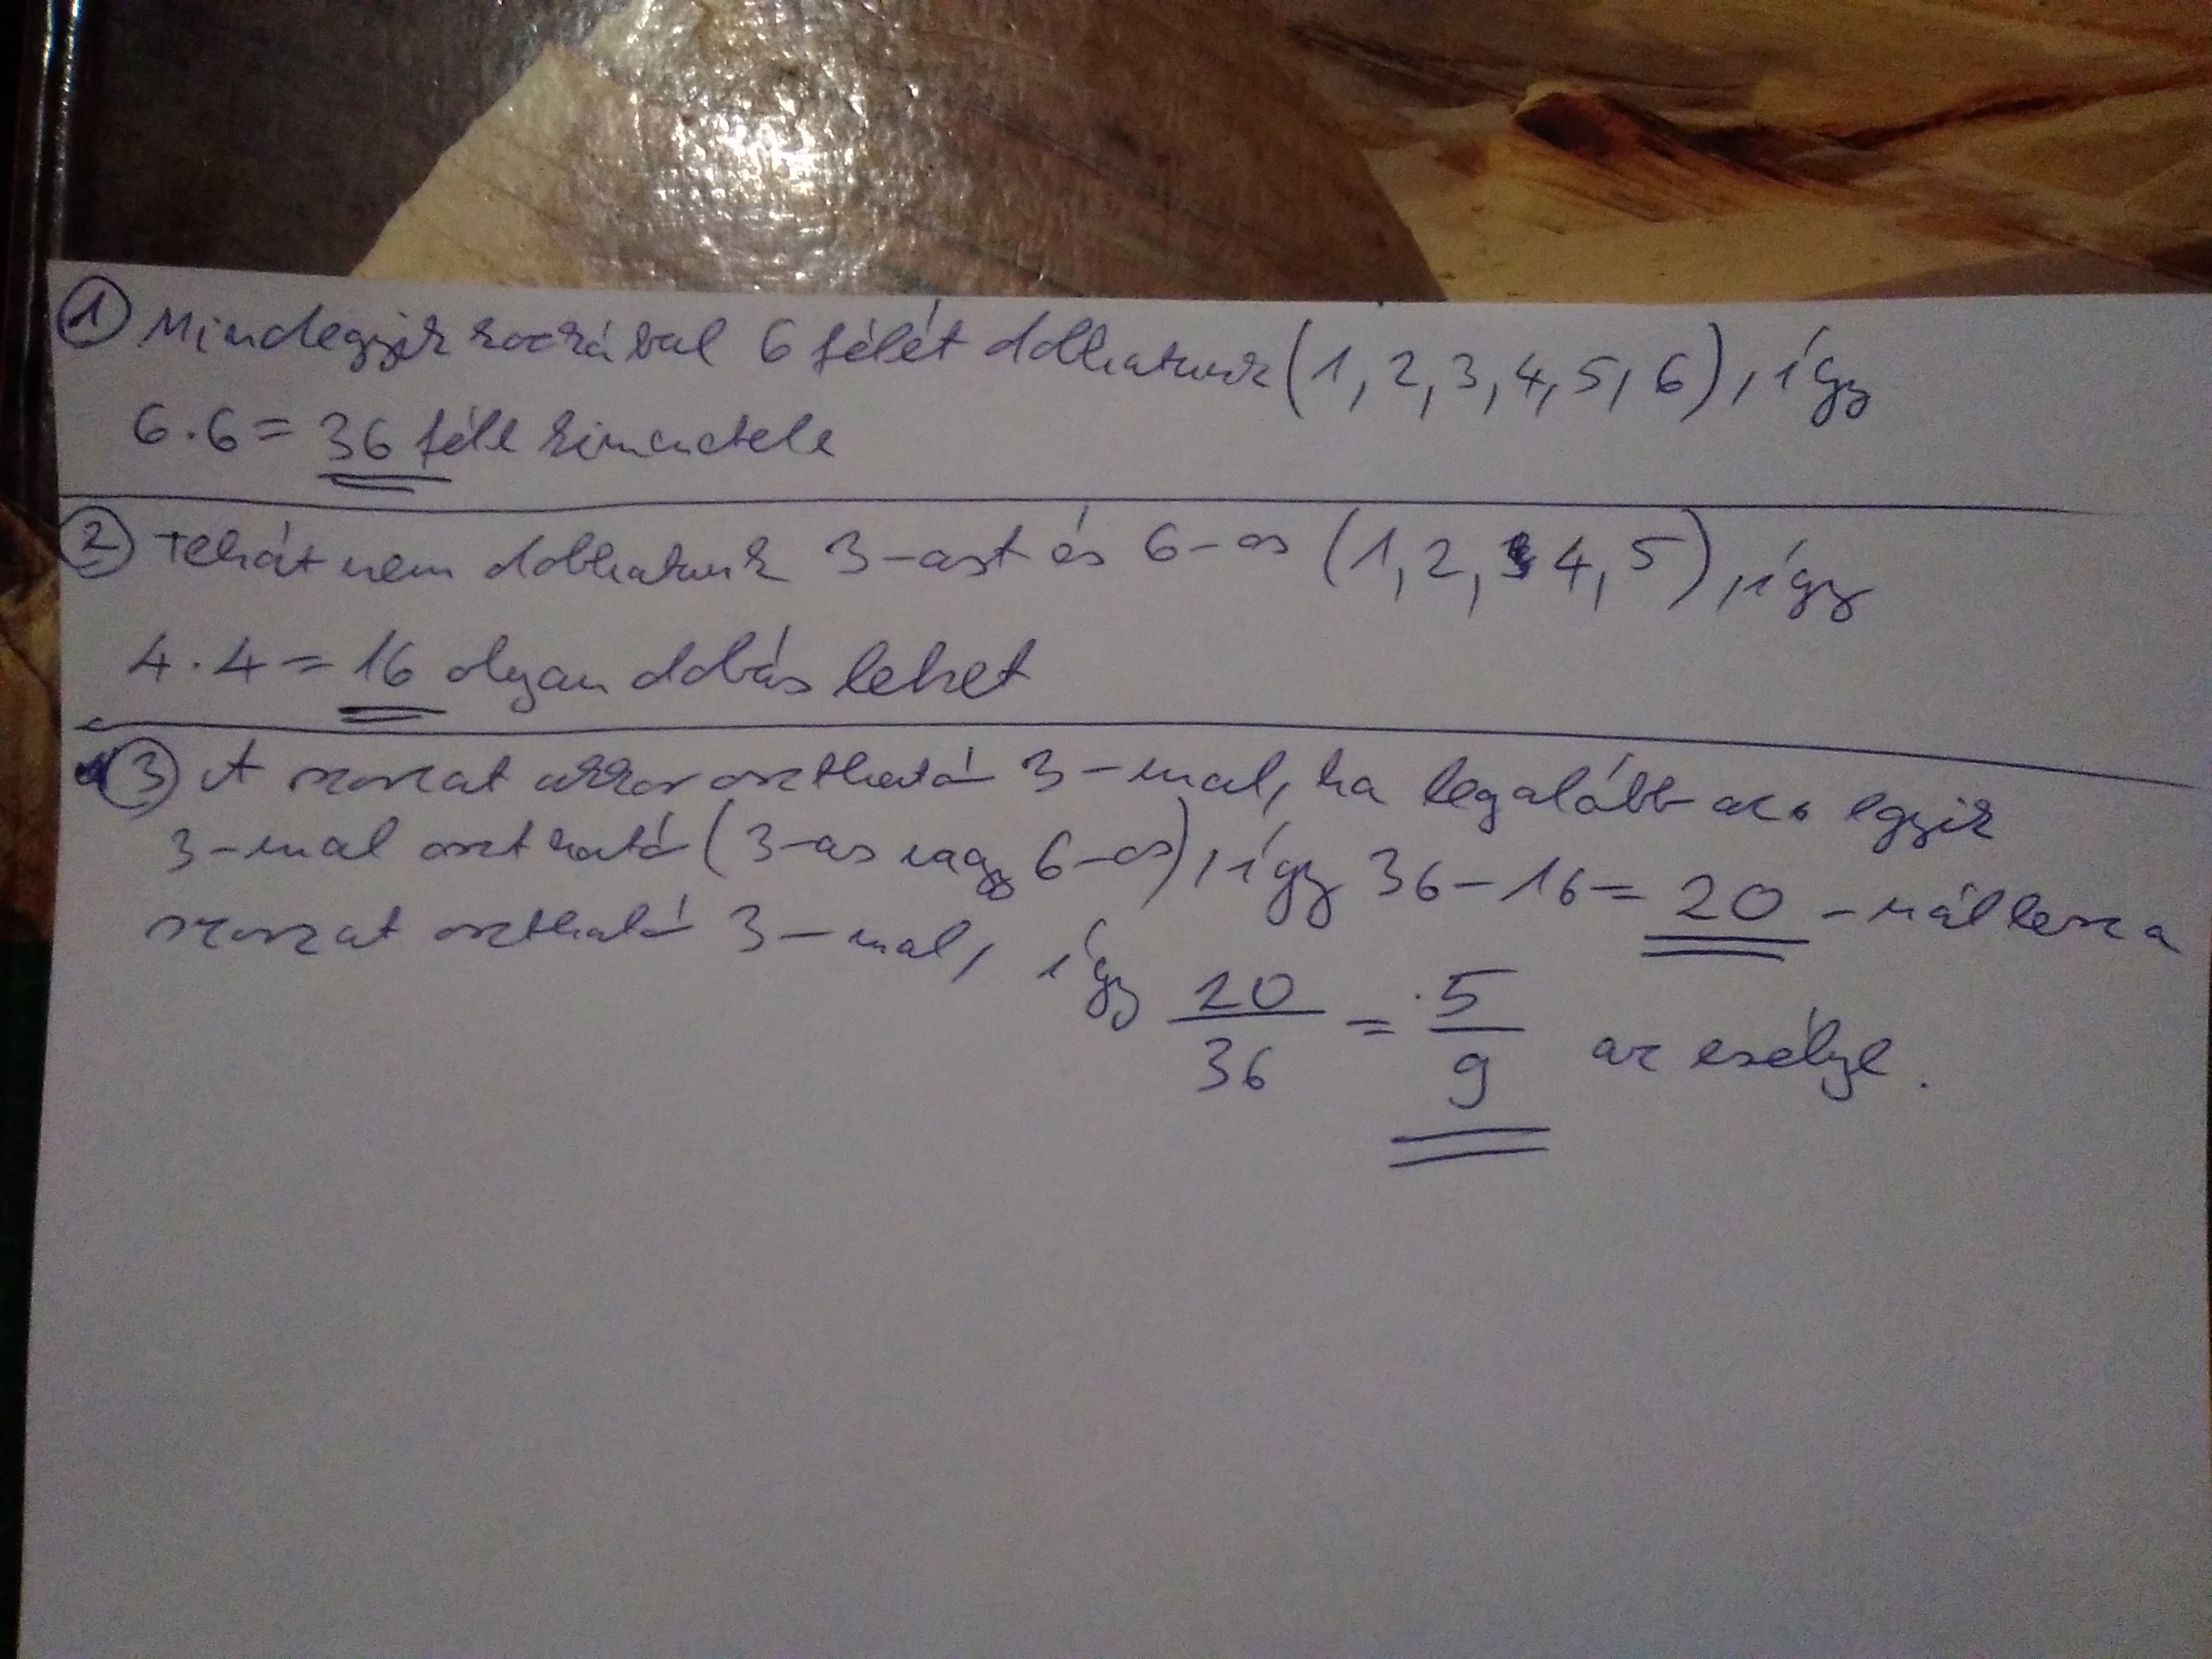 ① Mindegyik kockával 6 félét dobhatunk (1, 2, 3, 4, 5, 6), így
6·6= 36 féle kimenetele
② Tehát nem dobhatunk 3-ast és 6-os (1, 2, 4, 5), így
4·4= 16 olyan dobás lehet
③ A szorzat akkor osztható 3-mal, ha legalább az egyik
3-mal osztható (3-as vagy 6-os), így 36-16= 20 -nál lesz a
szorzat osztható 3-mal, így 20/36 = 5/9 az esélye.